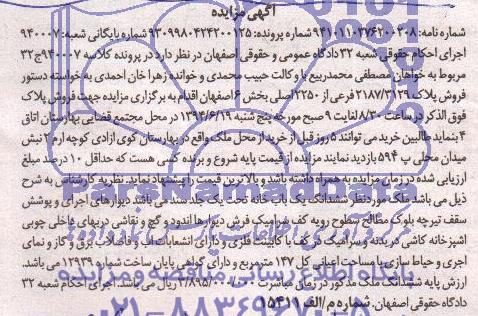 آگهی مزایده
شماره نامه: ۹۴۱۰۱۱۰۳۷۶۲۰۰۳۰۸ شماره پرونده: ۹۳۰۹۹۸۰۴۲۴۲۰۰۱۲۵ شماره بایگانی شعبه: ۹۴۰۰۰۷
اجرای احکام حقوقی شعبه ۳۲ دادگاه عمومی و حقوقی اصفهان در نظر دارد در پرونده کلاسه ۹۴۰۰۰۷ج۳۲
مربوط به خواهان مصطفی محمدربیع با وکالت حبیب محمدی و خوانده زهرا خان احمدی به خواسته دستور
فروش پلاک ۲۱۸۷/۳۱۲۹ فرعی از ۲۲۵۰ اصلی بخش ۶ اصفهان اقدام به برگزاری مزایده جهت فروش پلاک
فوق الذکر در ساعت ۸/۳۰ لغایت ۹ صبح مورخه پنج شنبه ۱۳۹۴/۶/۱۹ در محل مجتمع قضایی بهارستان اتاق
۴ بنماید طالبین خرید می توانند ۵ روز قبل از خرید از محل ملک واقع در بهارستان کوی ازادی کوچه ارم ۲ نبش
میدان محلی پ ۵۹۴ بازدید نمایند مزایده از قیمت پایه شروع و برنده کسی هست که حداقل ۱۰ درصد مبلغ
ارزیابی شده در زمان مزایده به همراه داشته باشد و بالاترین قیمت را پیشنهاد نماید. نظریه کارشناسی به شرح
ذیل می باشد ملک مورد نظر ششدانگ یک باب خانه تحت یک جلد سند می باشد دیوارهای اجرای و پوشش
سقف تیرچه بلوک مصالح سطوح رویه کف سرامیک فرش دیوارها اندود و گچ و نقاشی دربهای داخلی چوبی
اشپزخانه کاشی در بدنه و سرامیک در کف با کابینت فلزی و دارای انشعابات اب و فاضلاب برق و گاز و نمای
اجری و حیاط سازی با مساحت اعیانی کل ۱۴۷ مترمربع و دارای گواهی پایان ساخت شماره ۱۲۹۳۹ می باشد.
ارزش پایه ششدانگ ملک مذکور در زمان مباشرت ۳/۸۹۵/۰۰۰/۰۰۰ ریال می باشد. اجرای احکام شعبه ۳۲
دادگاه حقوقی اصفهان. شماره م/الف ۱۵۴۱۱
ParsNamadData
پایگاه اطلاع رسانی مناقصه و مزایده
۰۲۱-۸۸۳۴۹۶۷۰-۵